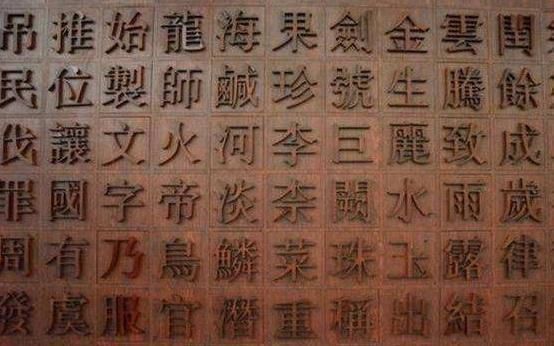 閏餘成歲律召
雲騰致雨露結
金生麗水玉出
劍號巨闕珠稱
果珍李柰菜重
海鹹河淡鱗潛
龍師火帝鳥官
始製文字乃服
推位讓國有虞
吊民伐罪周發